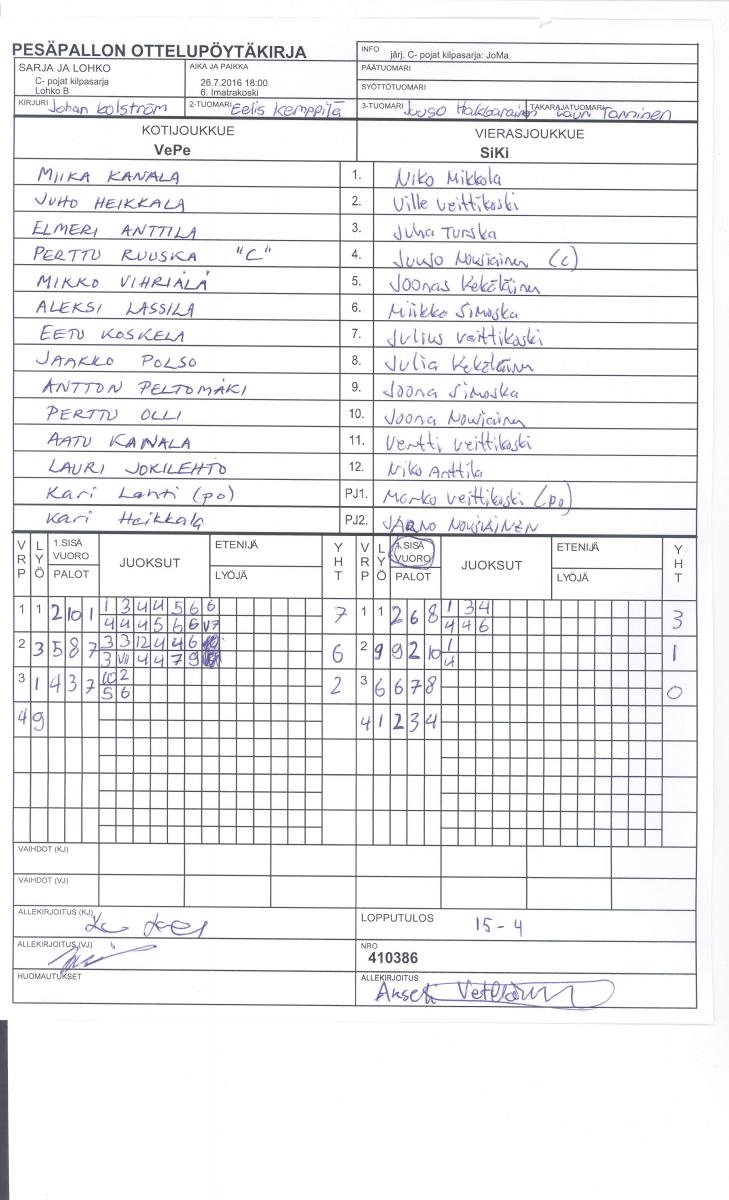 PESÄPALLON OTTELUPÖYTÄKIRJA
INFO järj. C- pojat kilpasarja: JoMa
SARJA JA LOHKO
C- pojat kilpasarja
Lohko B
AIKA JA PAIKKA
26.7.2016 18:00
6. Imatrakoski
PÄÄTUOMARI
SYÖTTÖTUOMARI
KIRJURI Johan Lolström 2-TUOMARI Eelis Kemppilä 3-TUOMARI Juuso Hakkarainen TAKARAJATUOMARI Lauri Tanninen
KOTIJOUKKUE VIERASJOUKKUE
VePe SiKi
MIIKA KANALA 1. Niko Mikkola
JUHO HEIKKALA 2. Ville Veittikoski
ELMERI ANTTILA 3. Juha Turska
PERTTU RUUSKA "C" 4. Juuso Nousiainen (c)
MIKKO VIHRIÄLÄ 5. Joonas Kekäläinen
ALEKSI LASSILA 6. Miikko Simoska
EETU KOSKELA 7. Julius Veittikoski
JAAKKO POLSO 8. Julia Kekäläinen
ANTTON PELTOMÄKI 9. Joona Simoska
PERTTU OLLI 10. Joona Nousiainen
AATU KANALA 11. Vertti Veittikoski
LAURI JOKILEHTO 12. Niko Anttila
Kari Lahti (po) PJ1. Marko Veittikoski (po)
Kari Heikkala PJ2. JARNO NOUSIAINEN
VRP LYÖ 1.SISÄ VUORO PALOT JUOKSUT ETENIJÄ LYÖJÄ YHT VRP LYÖ 1.SISÄ VUORO PALOT JUOKSUT ETENIJÄ LYÖJÄ YHT
1 1 2 10 1 1 3 4 4 5 6 6 7 1 1 2 6 8 1 3 4 3
4 4 4 5 6 6 V7 4 4 6
2 3 5 8 7 3 3 12 4 4 6 6 2 9 9 2 10 1 1
3 VII 4 4 7 9 4
3 1 4 3 7 10 2 2 3 6 6 7 8 0
5 6
4 9 4 1 2 3 4
VAIHDOT (KJ)
VAIHDOT (VJ)
ALLEKIRJOITUS (KJ) LOPPUTULOS 15-4
ALLEKIRJOITUS (VJ) NRO
410386
HUOMAUTUKSET ALLEKIRJOITUS